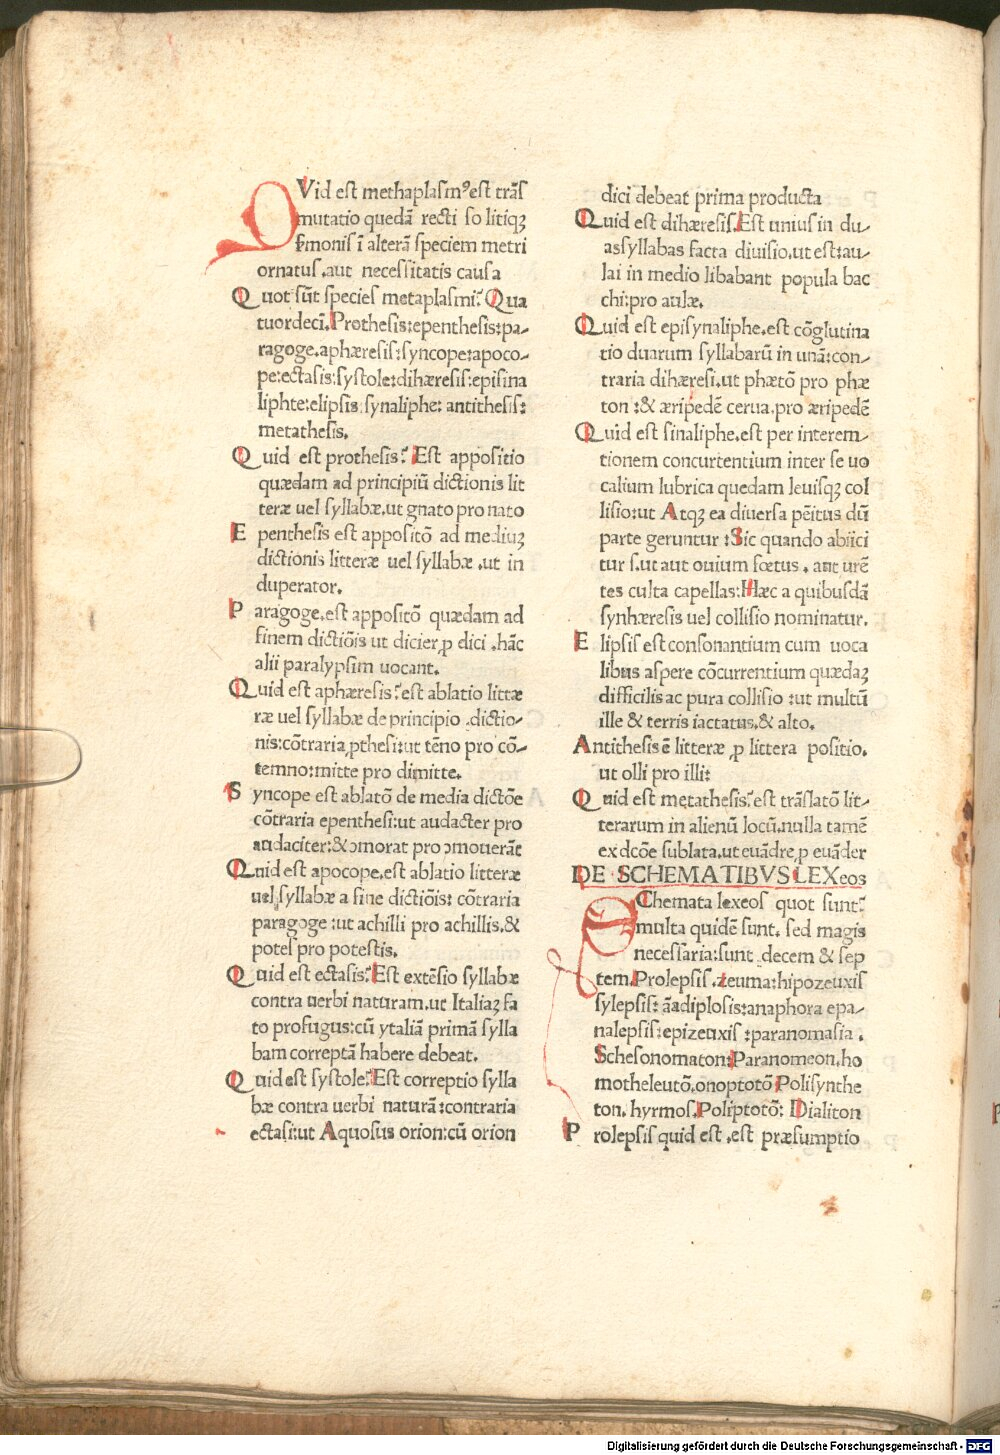 QVid est methaplasmꝰ est trãs
mutatio quedã recti so litiqꝫ
sermonis ĩ alterã speciem metri
ornatus.aut necessitatis causa
Quot sũt species metaplasmi? Qua
tuordeci. Prothesis:epenthesis:pa-
ragoge.aphæresis:syncope:apoco-
pe:ectasis:systole:dihæresis:episina
liphte:elipsis:synaliphe: antithesis:
metathesis.
Quid est prothesis? Est appositio
quædam ad principiũ dictionis lit
teræ uel syllabæ.ut gnato pro nato
Epenthesis est appositõ ad mediuꝫ
dictionis litteræ uel syllabæ .ut in
duperator.
Paragoge.est appositõ quædam ad
finem dictiõis ut dicier ꝓ dici .hãc
alii paralypsim uocant.
Quid est aphæresis? est ablatio littæ
ræ uel syllabæ de principio .dictio-
nis:cõtraria ꝓthesi:ut tẽno pro cõ-
temno:mitte pro dimitte.
Syncope est ablatõ de media dictõe
cõtraria epenthesi:ut audacter pro
audaciter:& ↄmorat pro ↄmouerãt
Quid est apocope.est ablatio litteræ
uel syllabæ a fine dictiõis: cõtraria
paragoge :ut achilli pro achillis.&
potes pro potestis.
Quid est ectasis? Est extẽsio syllabæ
contra uerbi naturam.ut Italiaꝫ fa
to profugus:cũ ytaliã primã sylla
bam correptã habere debeat.
Quid est systole? Est correptio sylla
bæ contra uerbi naturã:contraria
ectasi:ut Aquosus orion:cũ orion
dici debeat prima producta
Quid est dihæresis. Est unius in du-
as syllabas facta diuisio.ut est:au-
lai in medio libabant popula bac
chi:pro aulæ.
Quid est episynaliphe.est cõglutina
tio duarum syllabarũ in unã:con-
traria dihæresi.ut phætõ pro phæ
ton :& æripedẽ cerua.pro æripedẽ
Quid est sinaliphe.est per interem-
tionem concurtentium inter se uo
calium lubrica quedam leuisqꝫ col
lisio:ut Atqꝫ ea diuersa pẽitus dũ
parte geruntur :Sic quando abiici
tur s.ut aut ouium fœtus . aut urẽ
tes culta capellas:Hæc a quibusdã
synhæresis uel collisio nominatur.
Elipsis est consonantium cum uoca
libus aspere cõcurrentium quædaꝫ
difficilis ac pura collisio :ut multũ
ille & terris iactatus.& alto.
Antithesis ẽ litteræ ꝓ littera positio.
ut olli pro illi:
Quid est metathesis? est trãslatõ lit-
terarum in alienũ locũ.nulla tamẽ
ex dcõe sublata.ut euãdre ꝓ euãder
DE SCHEMATIBVS LEXeos
SChemata lexeos quot sunt?
multa quidẽ sunt. sed magis
necessaria:sunt decem & sep
tem. Prolepsis .zeuma:hipozeuxis
sylepsis: ãadiplosis:anaphora epa-
nalepsis:epizeuxis :paranomasia .
Schesonomaton: Paranomeon.ho
motheleutõ.onoptotõ Polisynthe
ton. hyrmos. Poliptotõ: Dialiton
Prolepsis quid est .est præsumptio
Digitalisierung gefördert durch die Deutsche Forschungsgemeinschaft - DFG